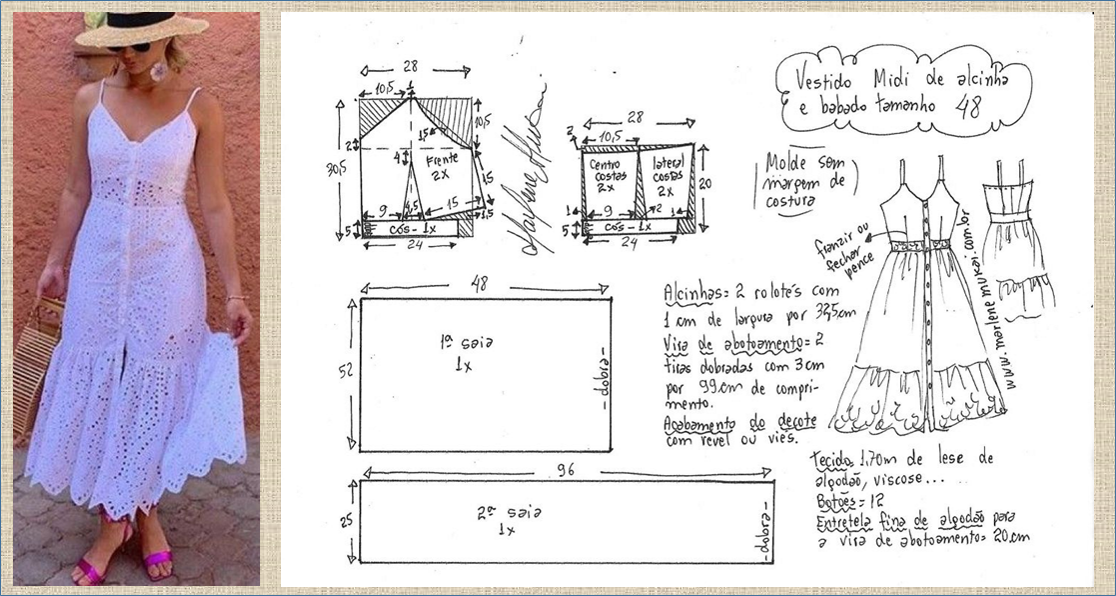 Vestido Midi de alcinha
e babado tamanho 48
Molde sem
margem de
costura
28
10,5
1
10,5
15
2
30,5
4
Frente
2x
15
9
4,5
15
1,5
5
cós - 1x
24
28
2
10,5
Centro
costas
2x
lateral
costas
2x
20
1
9
2
1
5
cós - 1x
24
Marlene Mukai
franzir ou
fechar
pence
www.marlenemukai.com.br
48
52
1ª saia
1x
- dobra -
96
25
2ª saia
1x
- dobra -
Alcinhas = 2 rolotês com
1 cm de largura por 32,5cm
Vira de abotoamento = 2
tiras dobradas com 3cm
por 99cm de compri-
mento.
Acabamento do decote
com revel ou viés.
Tecido 1,70m de lese de
algodão, viscose...
Botões = 12
Entretela fina de algodão para
a vira de abotoamento = 20cm